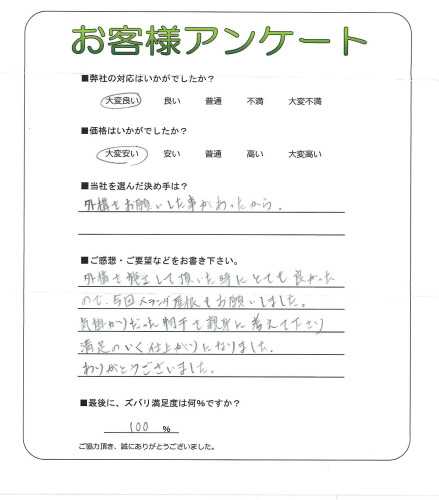 お客様アンケート
■弊社の対応はいかがでしたか？
大変良い 良い 普通 不満 大変不満
■価格はいかがでしたか？
大変安い 安い 普通 高い 大変高い
■当社を選んだ決め手は？
外構をお願いした事があったから。
■ご感想・ご要望などをお書き下さい。
外構を施工して頂いた時にとても良かった
ので、今回ベランダ屋根をお願いしました。
気掛かりだった 手を親身に考えて下さり
満足のいく仕上がりになりました。
ありがとうございました。
■最後に、ズバリ満足度は何%ですか？
100 %
ご協力頂き、誠にありがとうございました。